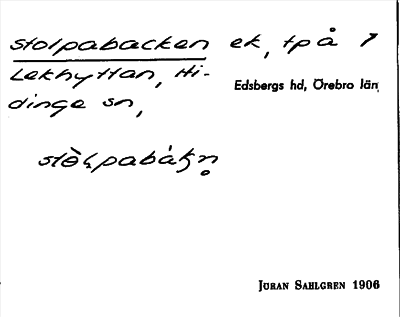 stolpabacken ek, tp å 1
Lekhyttan, Hi-
dinge sn,
Edsbergs hd, Örebro län
JÖRAN SAHLGREN 1906